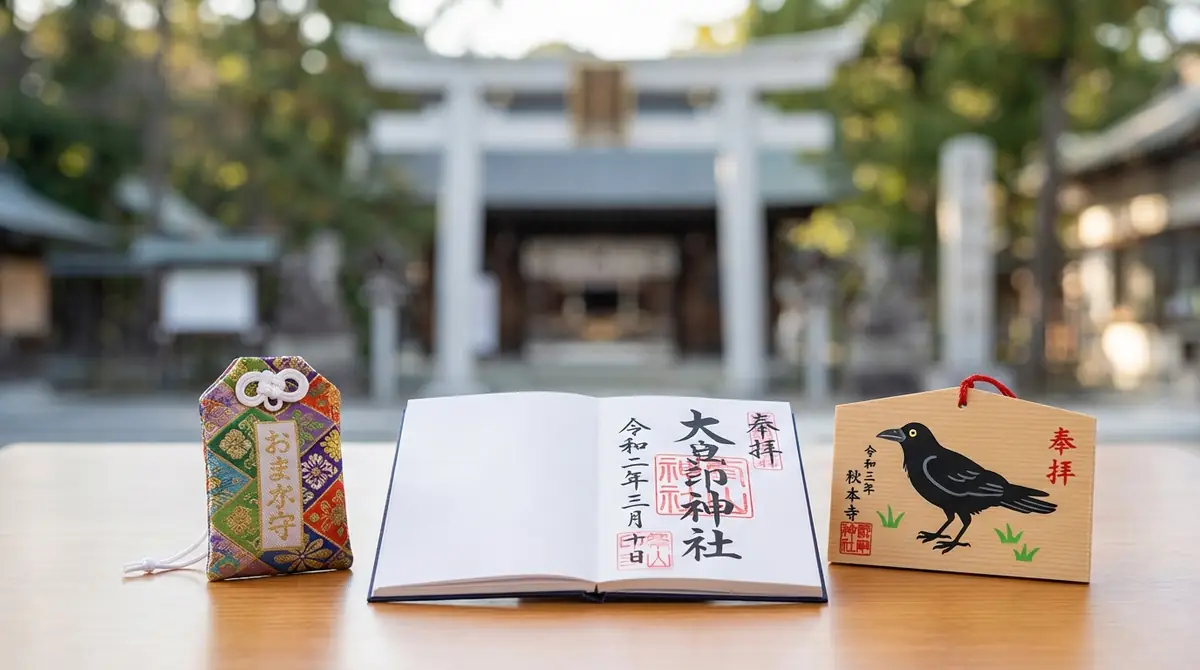 おまか守
奉拝
大 神社
令和二年三月十日
奉拝
令和三年
秋本寺